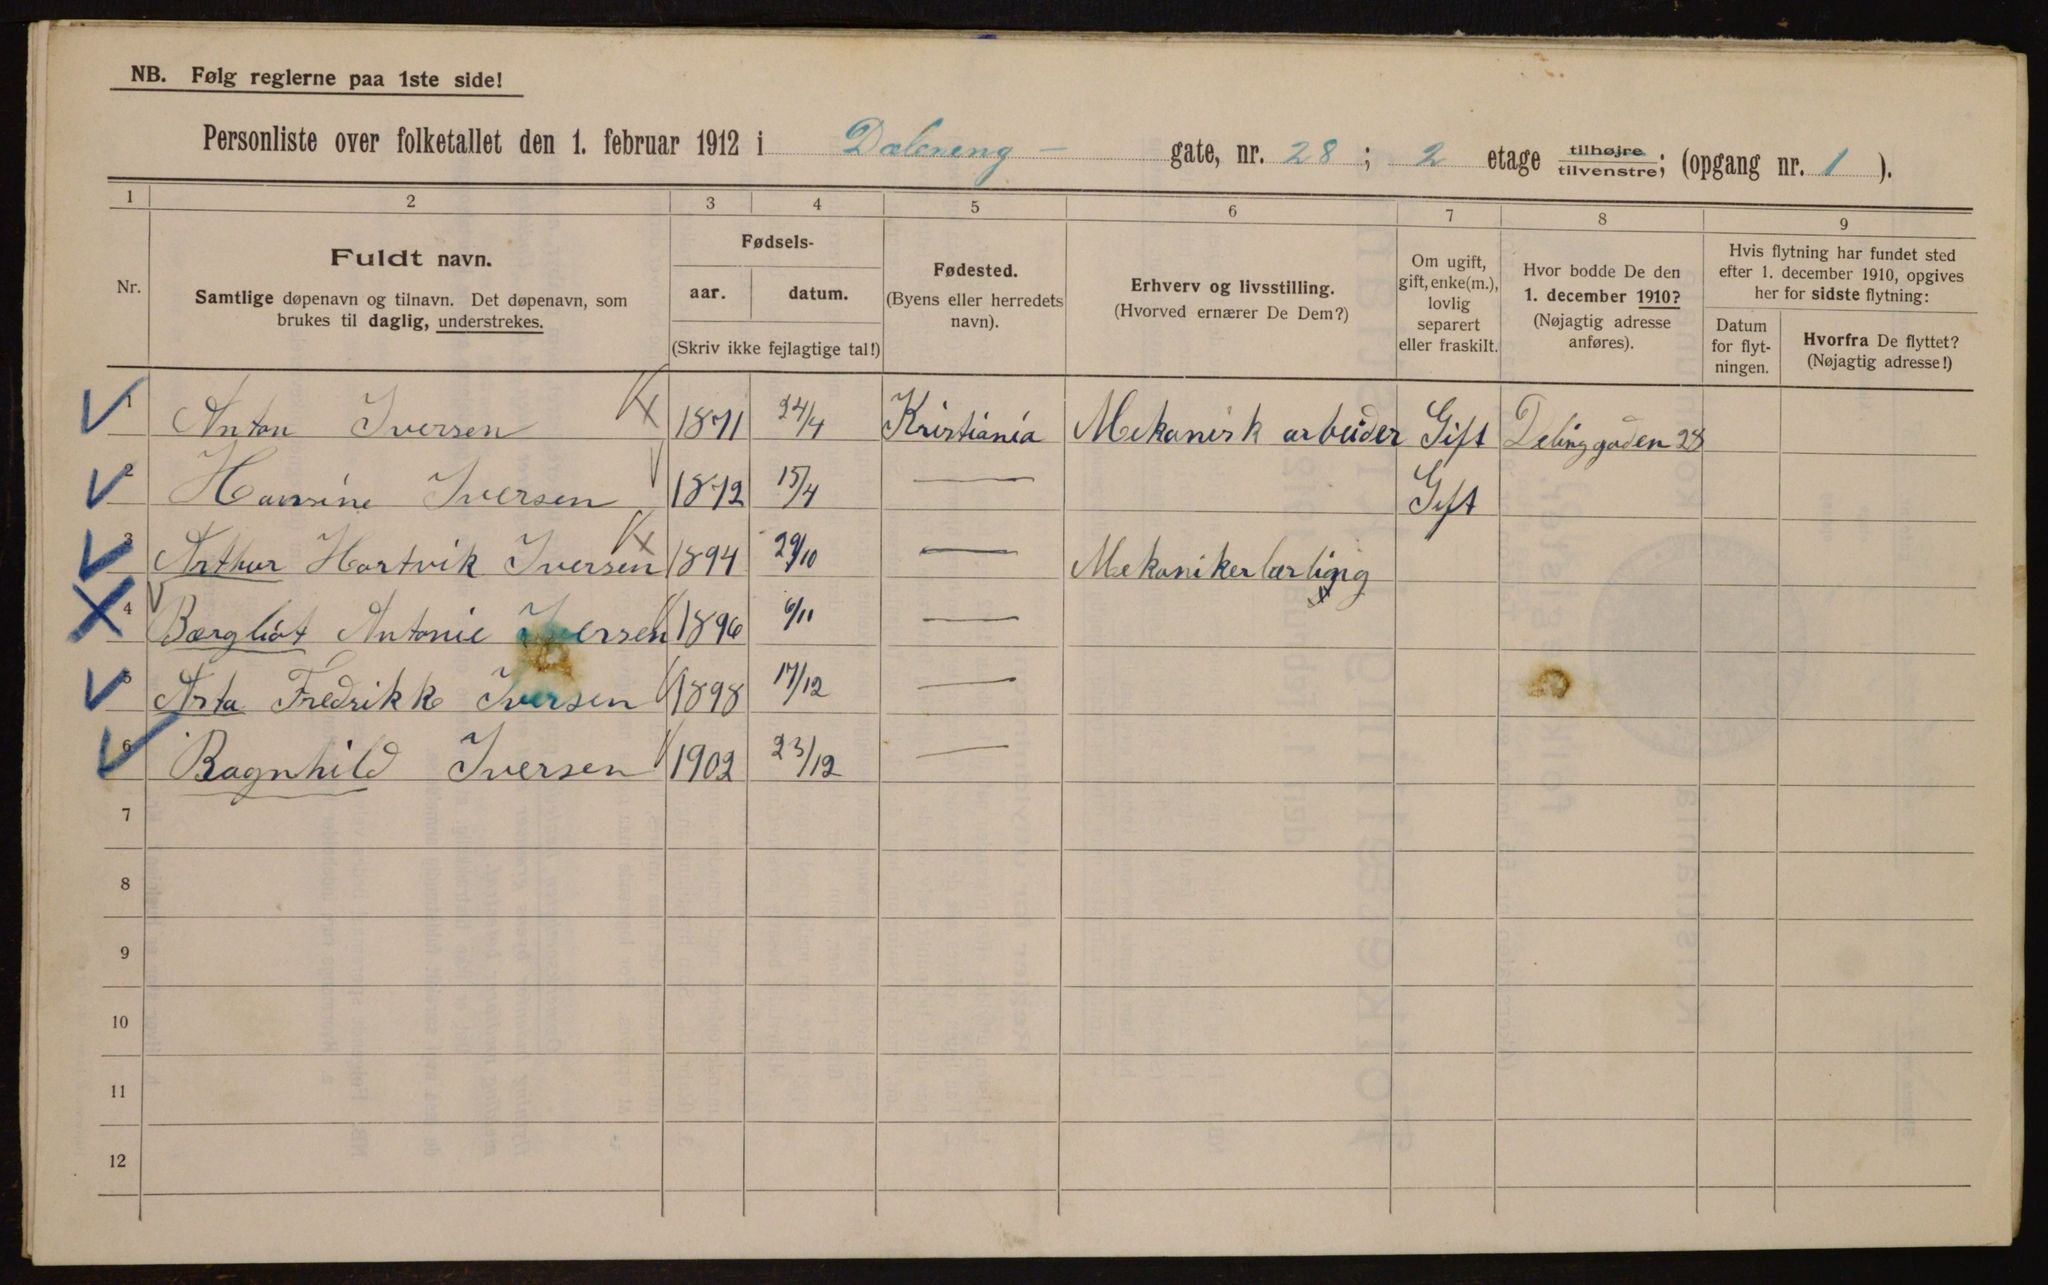 NB. Følg reglerne paa 1ste side!
Personliste over folketallet den 1. februar 1912 i Dæleneng- gate, nr. 28; 2 etage tilhøjre tilvenstre; (opgang nr. 1).
1 2 3 4 5 6 7 8 9
Nr.
Fuldt navn.
Samtlige døpenavn og tilnavn. Det døpenavn, som
brukes til daglig, understrekes.
Fødsels-
aar. datum.
(Skriv ikke fejlagtige tal!)
Fødested.
(Byens eller herredets
navn).
Erhverv og livsstilling.
(Hvorved ernærer De Dem?)
Om ugift,
gift, enke(m.),
lovlig
separert
eller fraskilt.
Hvor bodde De den
1. december 1910?
(Nøjagtig adresse
anføres).
Hvis flytning har fundet sted
efter 1. december 1910, opgives
her for sidste flytning:
Datum
for flyt-
ningen.
Hvorfra De flyttet?
(Nøjagtig adresse!)
1 Anton Iversen 1871 24/4 Kristiania Mekanisk arbeider Gift Delinggaden 28
2 Hansine Iversen 1872 15/4 — Gift
3 Arthur Hartvik Iversen 1894 29/10 — Mekanikerlærling
4 Bærgliot Antonie Iversen 1896 6/11 —
5 Asta Fredrikke Iversen 1898 17/12 —
6 Ragnhild Iversen 1902 23/12 —
7
8
9
10
11
12